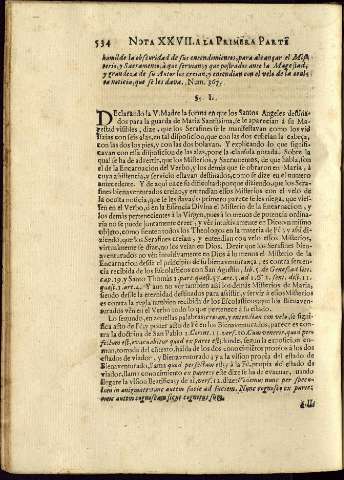 534 NOTA XXVII. A LA PRIMERA PARTE
humilde la obscuridad de sus entendimientos, para alcançar el Mis-
terio, y Sacramento, à que servian; y que postrados ante la Magestad,
y grandeza de su Autor los creian, y entendian con el velo de la oculta
noticia, que se les dava. Num. 367.
§. I.
DEclarando la V. Madre la forma en que los Santos Angeles destina-
dos para la guarda de Maria Santissima, se le aparecian à su Ma-
gestad visibles, dize, que los Serafines se le manifestavan como los vió
Isaias con seis alas, en tal disposicion, que con las dos cubrian la cabeça,
con las dos los pies, y con las dos bolavan. Y explicando lo que significa-
van con esta disposicion de las alas, pone la clausula notada. Sobre la
qual se ha de advertir, que los Misterios, y Sacramentos, de que habla, son
el de la Encarnacion del Verbo, y los demàs que se obraron en Maria, à
cuya assistencia, y servicio estavan destinados, como se dize en el numero
antecedente. Y de aqui nace su dificultad; porque diziendo, que los Sera-
fines bienaventurados creian, y entendian estos Misterios con el velo de
la oculta noticia, que se les dava: lo primero parece se les niega, que vies-
sen en el Verbo, ò en la Essencia Divina el Misterio de la Encarnacion, y
los demàs pertenecientes à la Virgen, pues à lo menos de potencia ordina-
ria no se puede juntamente creer, y vèr intuitivamente en Dios vn mismo
objeto, como sienten todos los Theologos en la materia de Fè; y assi di-
ziendo, que los Serafines creian, y entendian con velo estos Misterios,
virtualmente se dize, no los veian en Dios. Dezir que los Serafines bien-
aventurados no vèn intuitivamente en Dios à lo menos el Misterio de la
Encarnacion desde el principio de su bienaventurança, es contra senten-
cia recibida de los Escolasticos con San Agustin, lib. 5. de Genes. ad liter.
cap. 19. y Santo Thomàs 1. part. quæst. 57. art. 5. ad 1. & 2. sent. dist. 11.
quæst. 2. art. 4. Y aun no vèr tambien assi los demàs Misterios de Maria,
siendo desde la eternidad destinados para assistir, y servir à estos Misterios
es contra la regla tambien recibida de los Escolasticos, que los Bienaven-
turados vèn en el Verbo todo lo que pertenece à su estado.
Lo segundo, en aquellas palabras creian, y entendian con velo, se signi-
fica acto de Fè, y poner acto de Fè en los Bienaventurados, parece es con-
tra la doctrina de San Pablo 1. Corint. 13. vers. 10. Cum venerit, quod per-
fectum est, evacuabitur, quod ex parte est: donde, segun la exposicion co-
mun, tomada del contexto, habla de los dos conocimientos propios à los dos
estados de viador, y Bienaventurado; y à la vision propia del estado de
Bienaventurado, llama quod perfectum est; y à la Fè, propia del estado de
viador, llama conocimiento ex parte: y este dize se ha de evacuar, quando
llegare la vision Beatifica; y assi, vers. 12. dize: Videmus nunc per specu-
lum in ænigmate: tunc autem facie ad faciem. Nunc cognosco ex parte:
tunc autem cognoscam sicut cognitus sum.